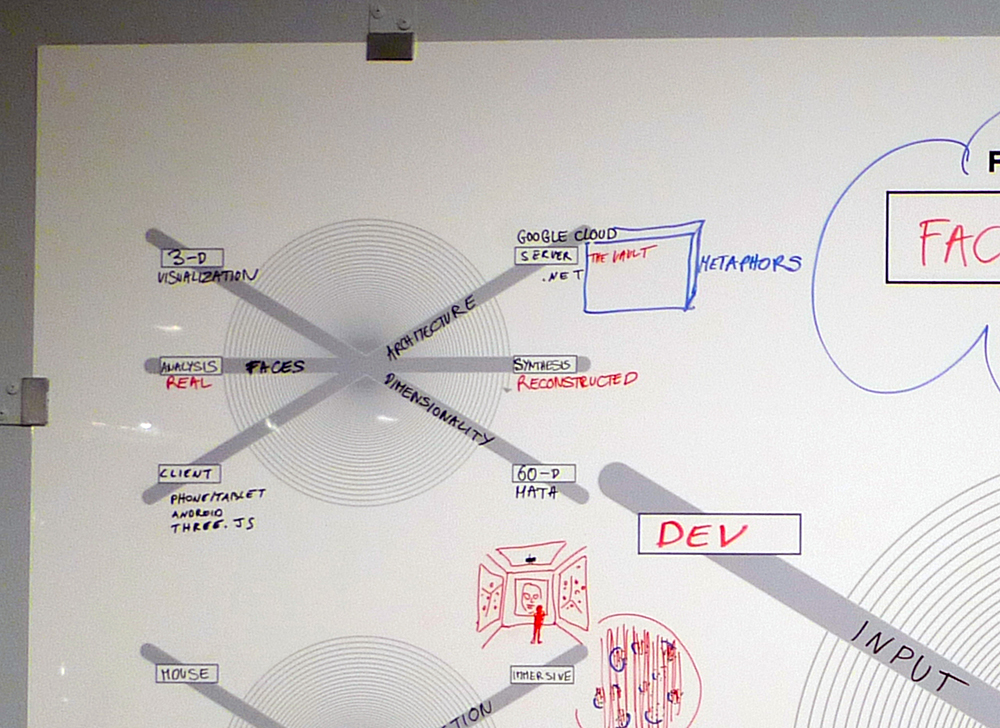 GOOGLE CLOUD
3-D
VISUALIZATION
SERVER
.NET
THE VAULT
METAPHORS
F
FAC
ARCHITECTURE
ANALYSIS
REAL
FACES
SYNTHESIS
RECONSTRUCTED
DIMENSIONALITY
CLIENT
PHONE/TABLET
ANDROID
THREE.JS
60-D
MATA
DEV
INPUT
MOUSE
IMMERSIVE
TION